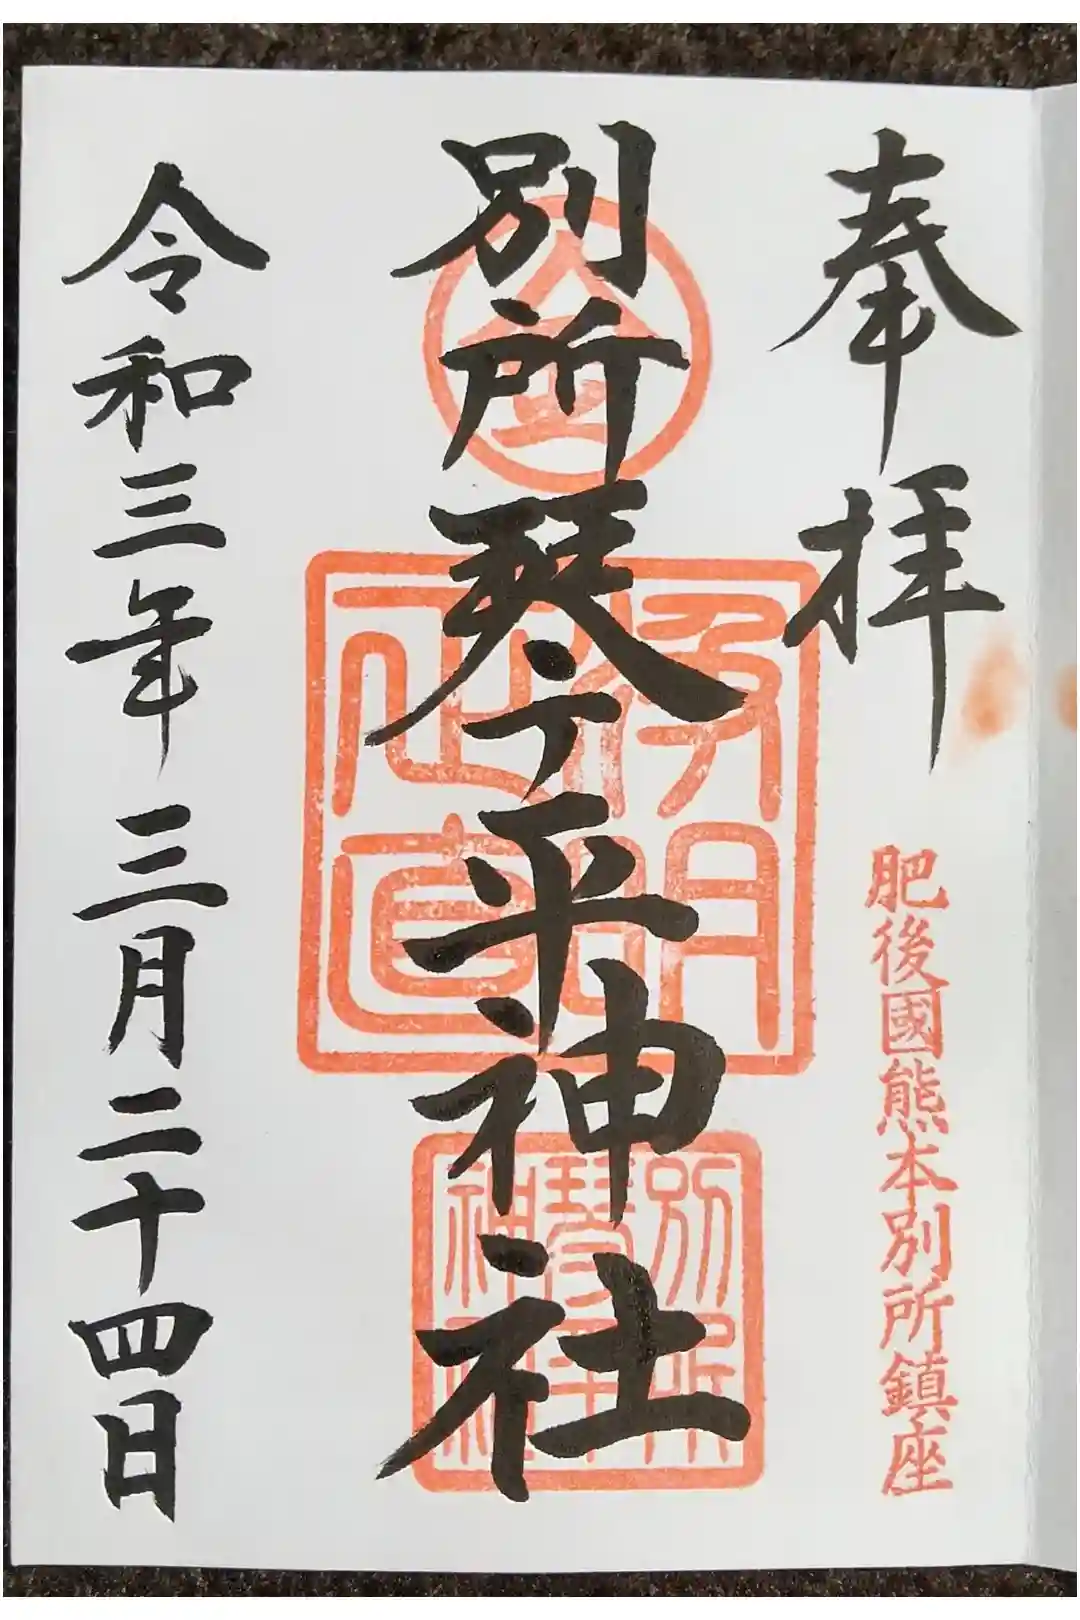 奉拝
肥後國熊本別所鎮座
別所琴平神社
令和三年三月二十四日
正直
別所琴平神社